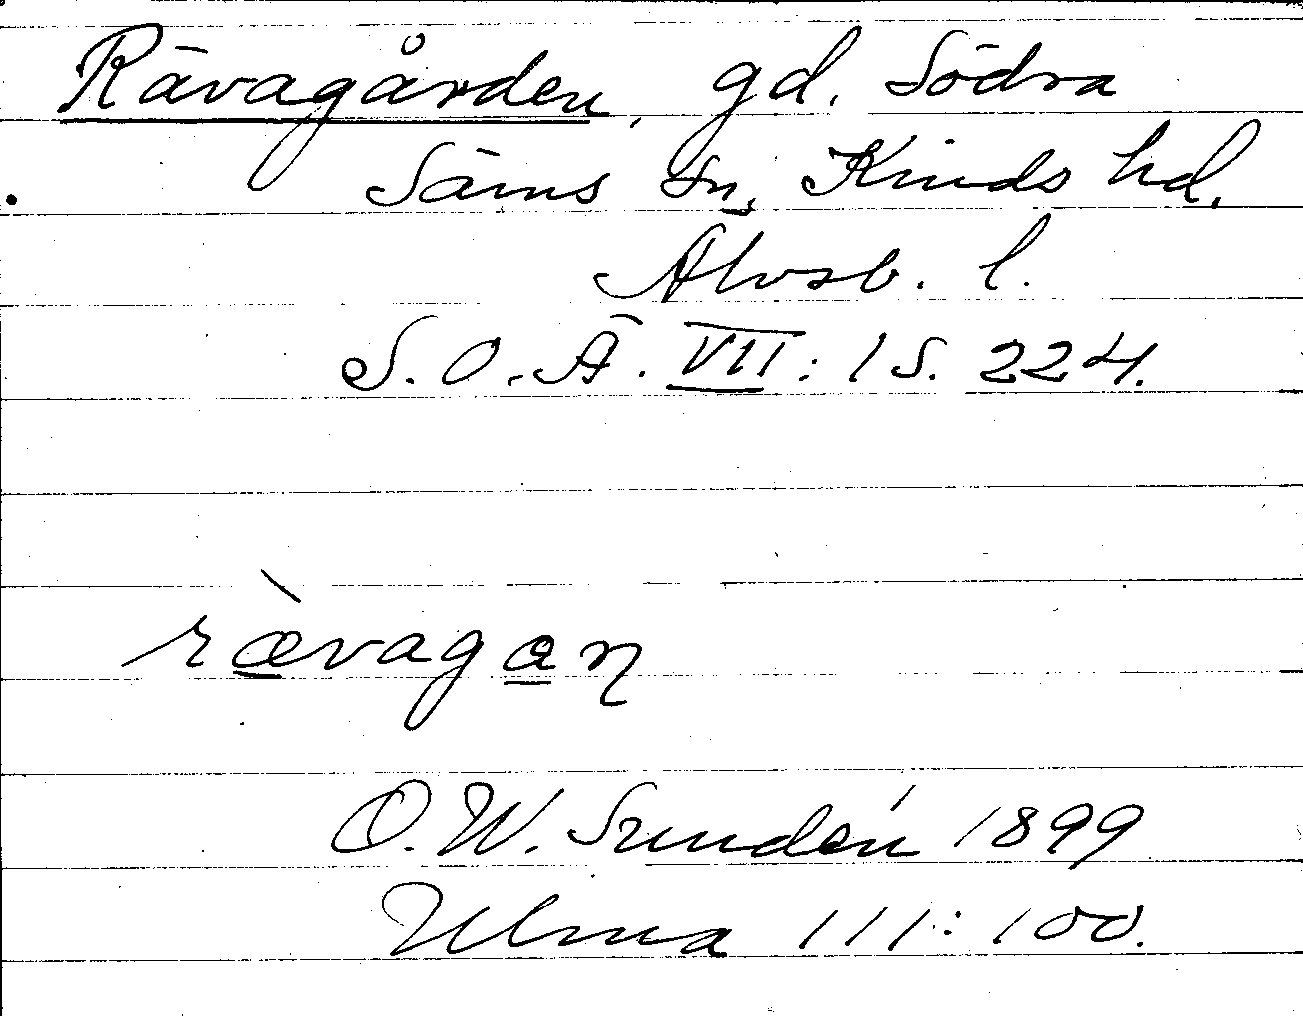 Rävagården, gd. Södra
Säms sn, Kinds hd.
Älvsb. l.
S. O. Ä. VII: 1 S. 224.
ræ̀vagan
O. W. Sundén 1899
Ulma 111: 100.